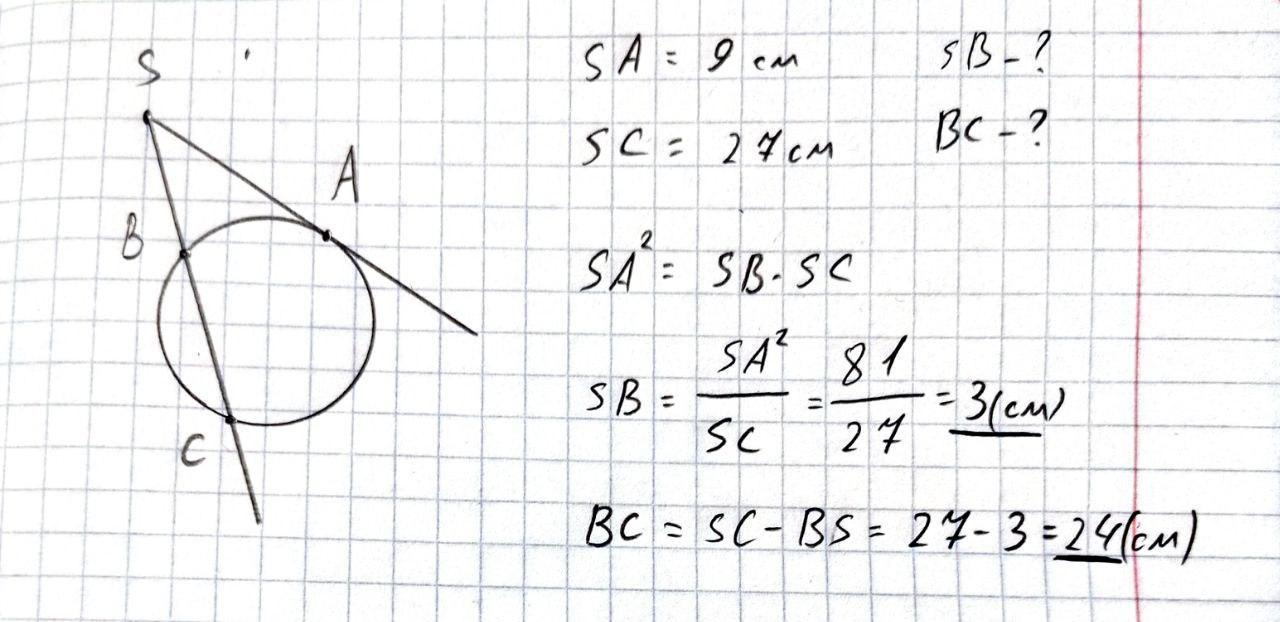 S
A
B
C
SA = 9 см SB - ?
SC = 27 см BC - ?
SA² = SB · SC
SB = SA²/SC = 81/27 = 3 (см)
BC = SC - BS = 27 - 3 = 24 (см)